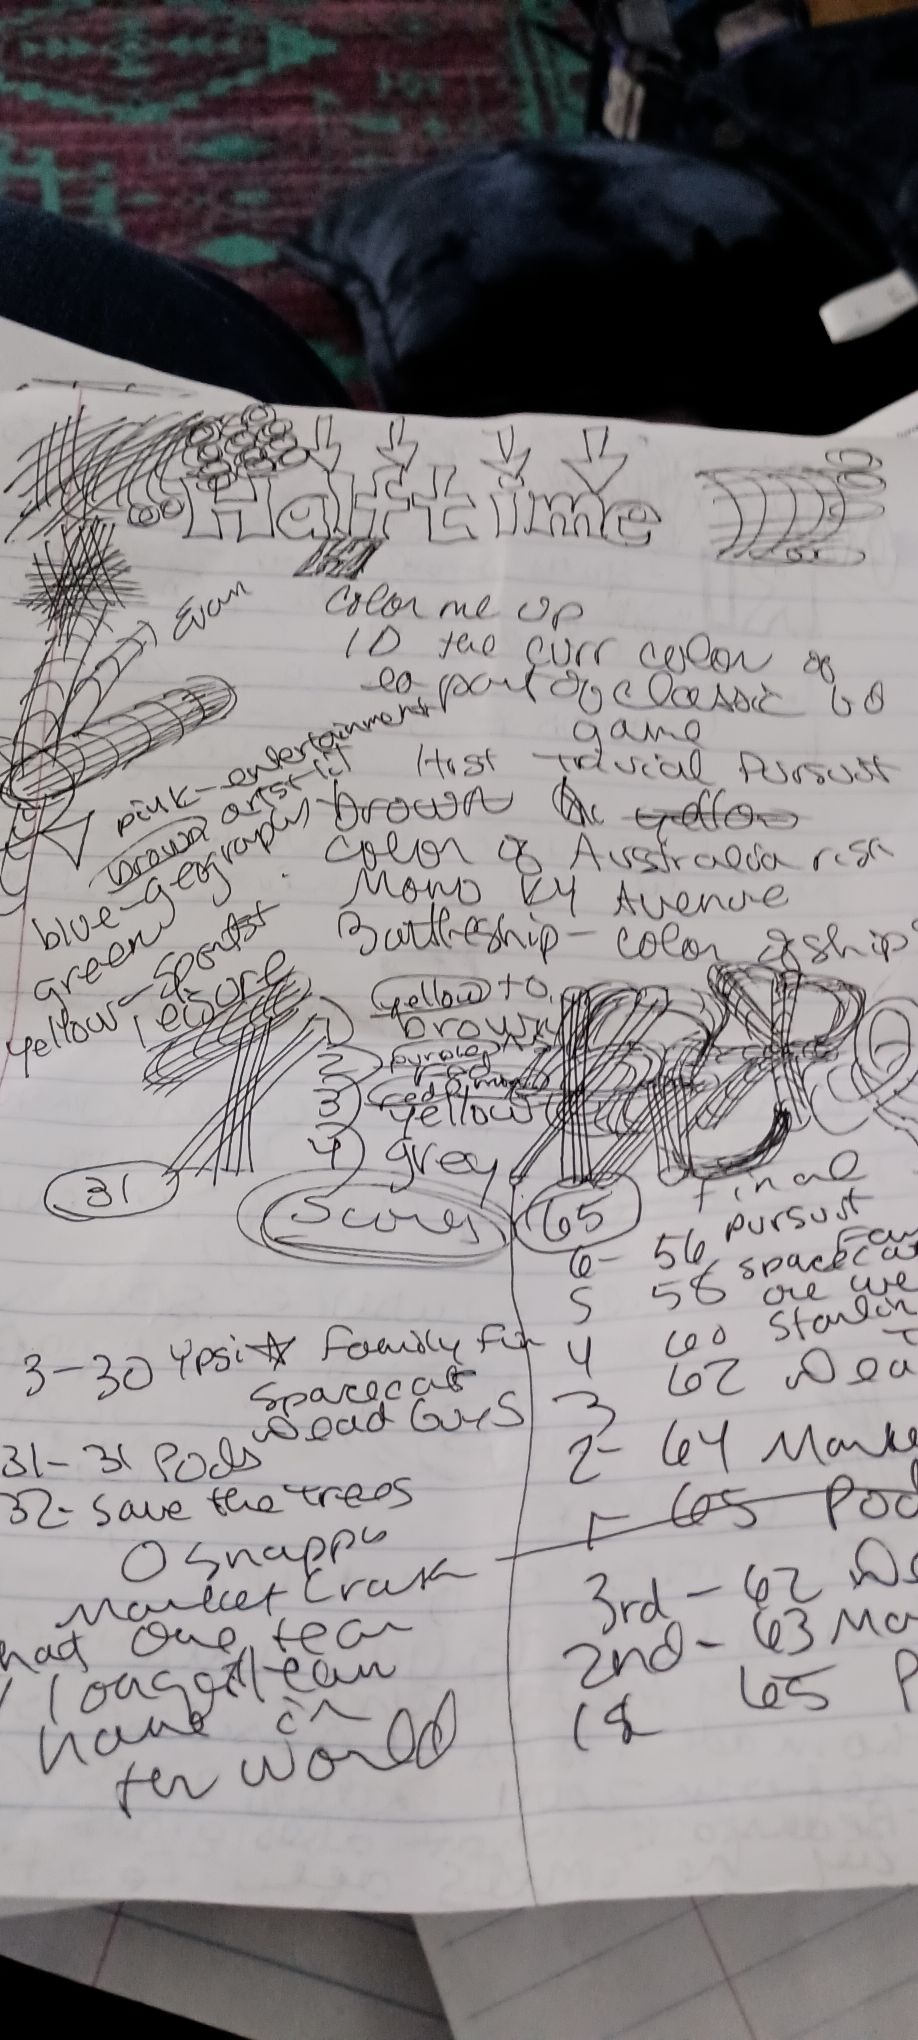 Halftime
Evan
Color me up
ID the curr color of
ea part of classic bd
game
Hist Trivial Pursuit
brown or yello
color of Australia risk
Mono KY Avenue
Battleship - color of ship
pink-entertainment
brown artst-lit
blue-geography
green
yellow-
leisure
1) yellow to
brown
2)
red
3)
yellow
4) grey
31
Scores
65
final
6- 56 pursuit
5 58 spacecat
are we
4 60 Starlin
3 62 Dea
2- 64 Marke
1- 65 Pod
3-30 Ypsi Family Fin
Spacecat
Dead Guys
31-31 Pods
32- Save the trees
O Snapp
Market Crash
had one team
longest team
name in
the world
3rd - 62 De
2nd - 63 Ma
1st 65 P